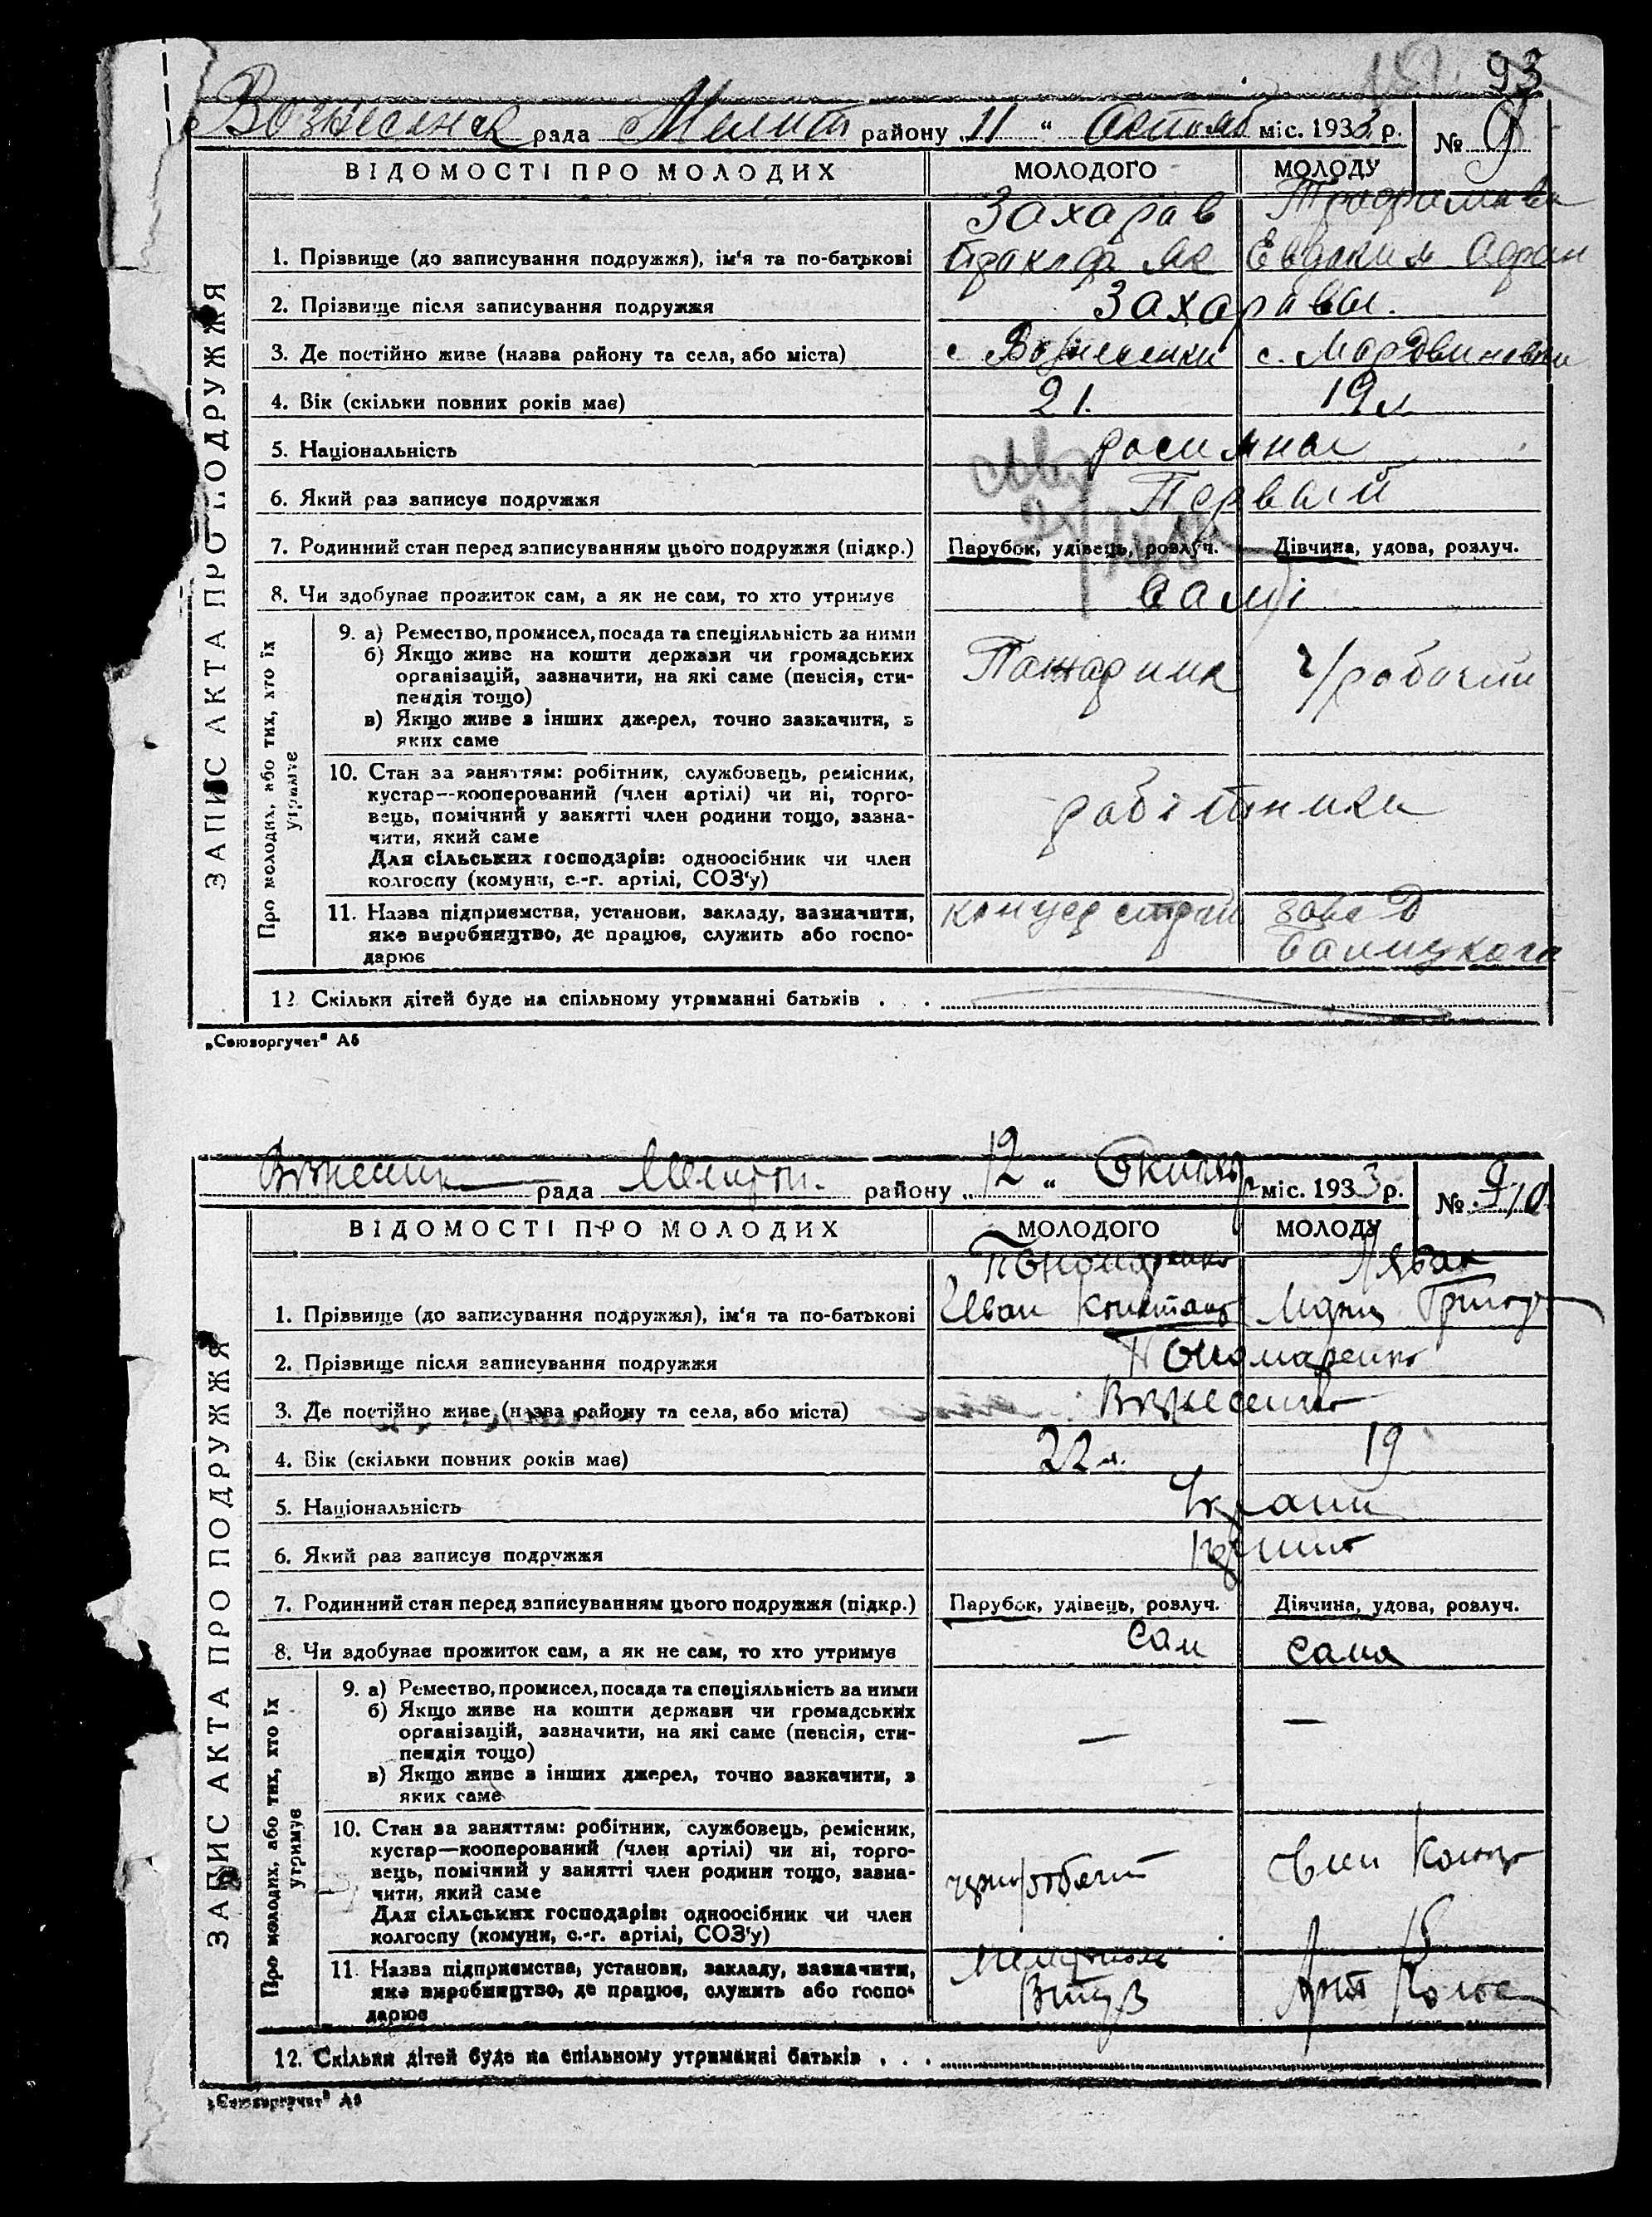 93
Вознесенск рада Мелит району „11 “ Октяб міс. 1933 р. № 9
ВІДОМОСТІ ПРО МОЛОДИХ МОЛОДОГО МОЛОДУ
ЗАПИС АКТА ПРО ПОДРУЖЖЯ
Захарав Трофимова
1. Прізвище (до записування подружжя), ім'я та по-батькові Евдокия Афан
2. Прізвище після записування подружжя Захаравы.
3. Де постійно живе (назва району та села, або міста) с Вознесенки с. Мордвиновки
4. Вік (скільки повних років має) 21. 19 л
5. Національність росияны
6. Який раз записує подружжя Первый
7. Родинний стан перед записуванням цього подружжя (підкр.) Парубок, удівець, розлуч. Дівчина, удова, розлуч.
8. Чи здобуває прожиток сам, а як не сам, то хто утримує самі
Про молодих, або тих, хто їх утримує
9. а) Ремество, промисел, посада та спеціяльність за ними
б) Якщо живе на кошти держави чи громадських Пожарник ч/рабочий
організацій, зазначити, на які саме (пенсія, сти-
пендія тощо)
в) Якщо живе з інших джерел, точно зазначити, з
яких саме
10. Стан за заняттям: робітник, службовець, ремісник,
кустар—кооперований (член артілі) чи ні, торго- робітники
вець, помічний у занятті член родини тощо, зазна-
чити, який саме
Для сільських господарів: одноосібник чи член
колгоспу (комуни, с.-г. артілі, СОЗ'у)
11. Назва підприємства, установи, закладу, зазначити, завод
яке виробництво, де працює, служить або госпо-
дарює
12. Скільки дітей буде на спільному утриманні батьків . . .
„Союзоргучет" А5
рада Мелитоп. району „12 “ міс. 1933 р. № 10
ВІДОМОСТІ ПРО МОЛОДИХ МОЛОДОГО МОЛОДУ
ЗАПИС АКТА ПРО ПОДРУЖЖЯ
Пономаренко
1. Прізвище (до записування подружжя), ім'я та по-батькові Иван Констант Григор
2. Прізвище після записування подружжя Пономаренко
3. Де постійно живе (назва району та села, або міста) Вознесенка
4. Вік (скільки повних років має) 22 л. 19
5. Національність
6. Який раз записує подружжя
7. Родинний стан перед записуванням цього подружжя (підкр.) Парубок, удівець, розлуч. Дівчина, удова, розлуч.
8. Чи здобуває прожиток сам, а як не сам, то хто утримує сам сама
Про молодих, або тих, хто їх утримує
9. а) Ремество, промисел, посада та спеціяльність за ними
б) Якщо живе на кошти держави чи громадських
організацій, зазначити, на які саме (пенсія, сти- — —
пендія тощо)
в) Якщо живе з інших джерел, точно зазначити, з
яких саме
10. Стан за заняттям: робітник, службовець, ремісник,
кустар—кооперований (член артілі) чи ні, торго-
вець, помічний у занятті член родини тощо, зазна-
чити, який саме
Для сільських господарів: одноосібник чи член
колгоспу (комуни, с.-г. артілі, СОЗ'у)
11. Назва підприємства, установи, закладу, зазначити,
яке виробництво, де працює, служить або госпо-
дарює
12. Скільки дітей буде на спільному утриманні батьків . . .
„Союзоргучет" А5